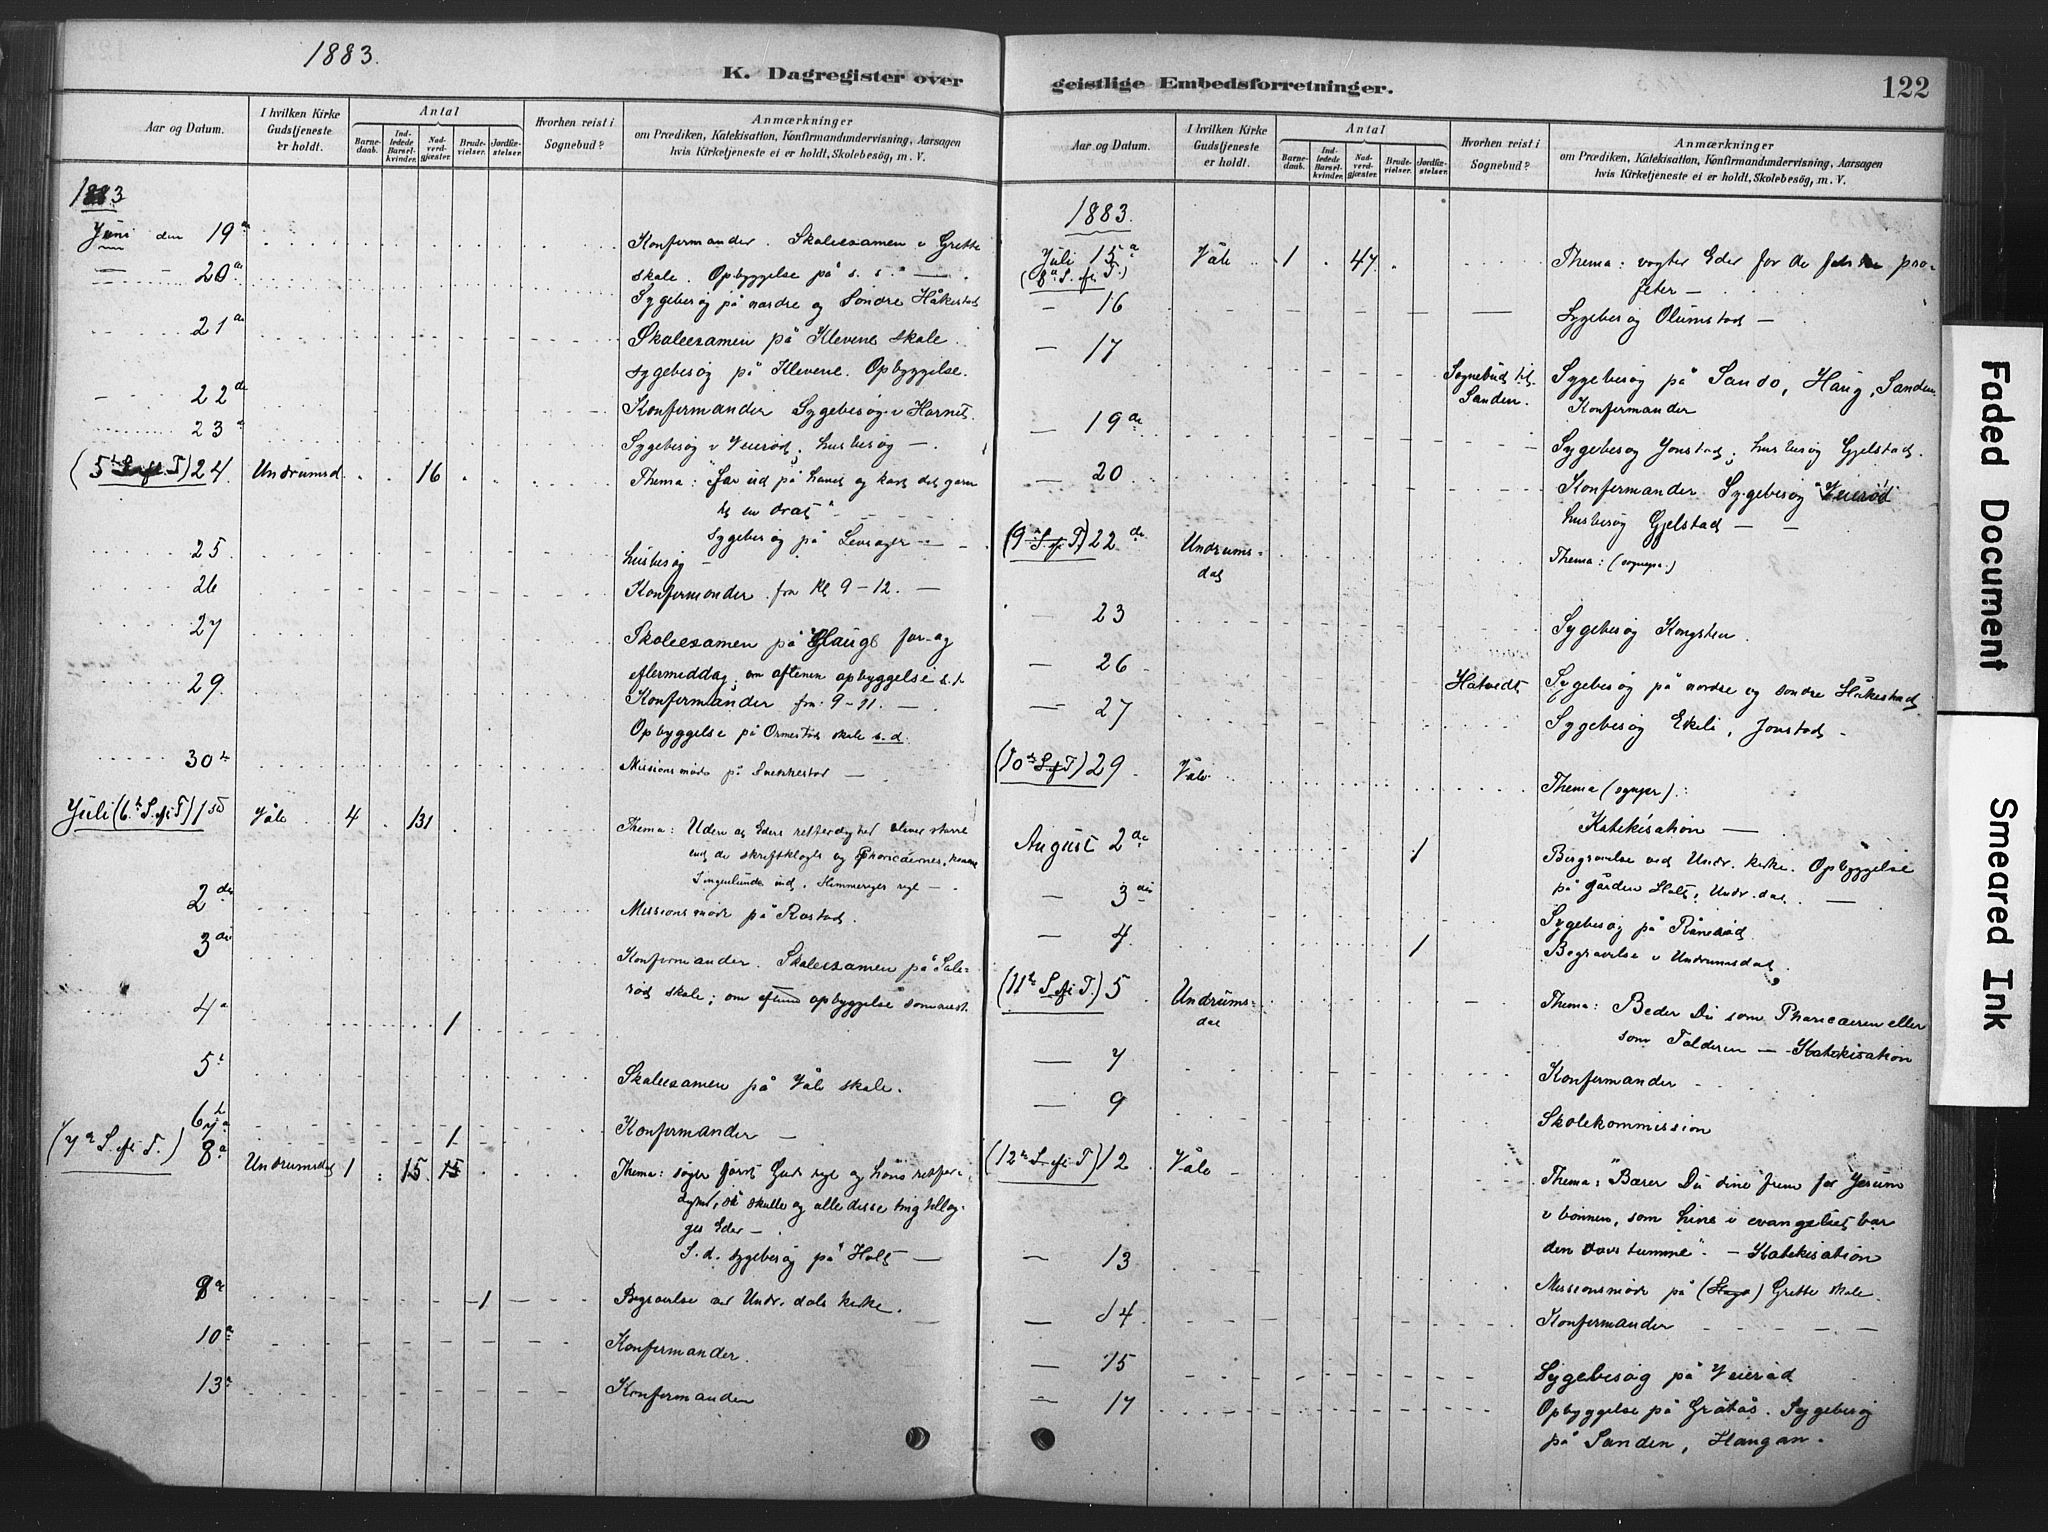 1883.
K. Dagregister over
Aar og Datum.
I hvilken Kirke Gudstjeneste er holdt.
Antal
Barnedaab.
Indledede Barselkvinder.
Nadverdgjæster.
Brudevielser.
Jordfæstelser.
Hvorhen reist i Sognebud?
Anmærkninger
om Prædiken, Katekisation, Konfirmandundervisning, Aarsagen
hvis Kirketjeneste ei er holdt, Skolebesög, m. V.
1883
Juni den 19
Konfermander. Skoleexamen i Grette
20
skole. Opbyggelse på s. s.
Sygebesög på nordre og Söndre Håkestad
21
Skoleexamen på Klevene skole
sygebesög på Klevene. Opbyggelse.
22
Konfermander Sygebesög
23
Sygebesög i Veieröd, husbesög
24 Undrumsd. 16
Thema: far ud på havet og kast det garn
til en drat
25
Sygebesög på
husbesög
26
Konfermander fra Kl 9-12.
27
Skoleexamen på Haugs for- og
29
eftermiddag; om aftenen opbyggelse s. s.
Konfermander fra 9-11.
Opbyggelse på Ormestad skole s. d.
30
Missionsmöde på
Juli (6 S. e. T) 1 Våle 4 131
Thema: Uden at Eders retferdighed bliver större
end de skriftklogte og Pharicæernes, komme
I ingenlunde ind i Himmeriges rige
2
Missionsmöde på Rostad.
3
Konfermander. Skoleexamen på
röd skole; om opbyggelse
4 1
5
Skoleexamen på Våle skole.
6
7 1
Konfermander
(7 S. e. T.) 8 Undrumsdal 1 15 15
Thema: söger först Guds rige og hans retfer-
dighed, så skulle og alle disse ting tillæg-
ges Eder
S. d. sygebesög på Holt
9 1
Begravelse ved Undr. dals kirke.
10
Konfermander.
13
Konfermander
geistlige Embedsforretninger.
122
Aar og Datum.
I hvilken Kirke Gudstjeneste er holdt.
Antal
Barnedaab.
Indledede Barselkvinder.
Nadverdgjæster.
Brudevielser.
Jordfæstelser.
Hvorhen reist i Sognebud?
Anmærkninger
om Prædiken, Katekisation, Konfirmandundervisning, Aarsagen
hvis Kirketjeneste ei er holdt, Skolebesög, m. V.
1883.
Juli 15 Våle 1 47
(8 S. e. T.)
Thema: vogter Eder for de falske pro-
feter
16
Sygebesög Olumstad
17
Sognebud til Sanden.
Sygebesög på Sando, Haug, Sanden
Konfermander
19
Sygebesög Jonstad; husbesög Gjelstad.
20
Konfermander Sygebesög Veieröd
husbesög Gjelstad
(9 S. e. T) 22 Undrumsdal
Thema:
23
Sygebesög Kongsteen.
26 Hatvedt
Sygebesög på nordre og söndre Håkestad
27
Sygebesög Ekeli, Jonstad
(10 S. e. T) 29 Våle
Thema
Katekisation
August 2 1
Begravelse ved Undr. kirke. Opbyggelse
3
på gården Holt, Undr. dal.
4
Sygebesög på Råneröd
1
Begravelse i Undrumsdal.
(11 S. e. T.) 5 Undrumsdal
Thema: Beder Du som Pharicæeren eller
som Tolderen - Katekisation
7
Konfermander
9
Skolekommission
(12 S. e. T) 12 Våle
Thema: "Bærer Du dine frem for Jesum
i bönnen, som hine i evangeliet bar
den döve stumme". - Katekisation
13
Missionsmöde på Grette skole.
14
Konfermander
15
Sygebesög på Veieröd
17
Opbyggelse på Gråtås. Sygebesög
på Sanden, Haugan.
Faded Document
Smeared Ink